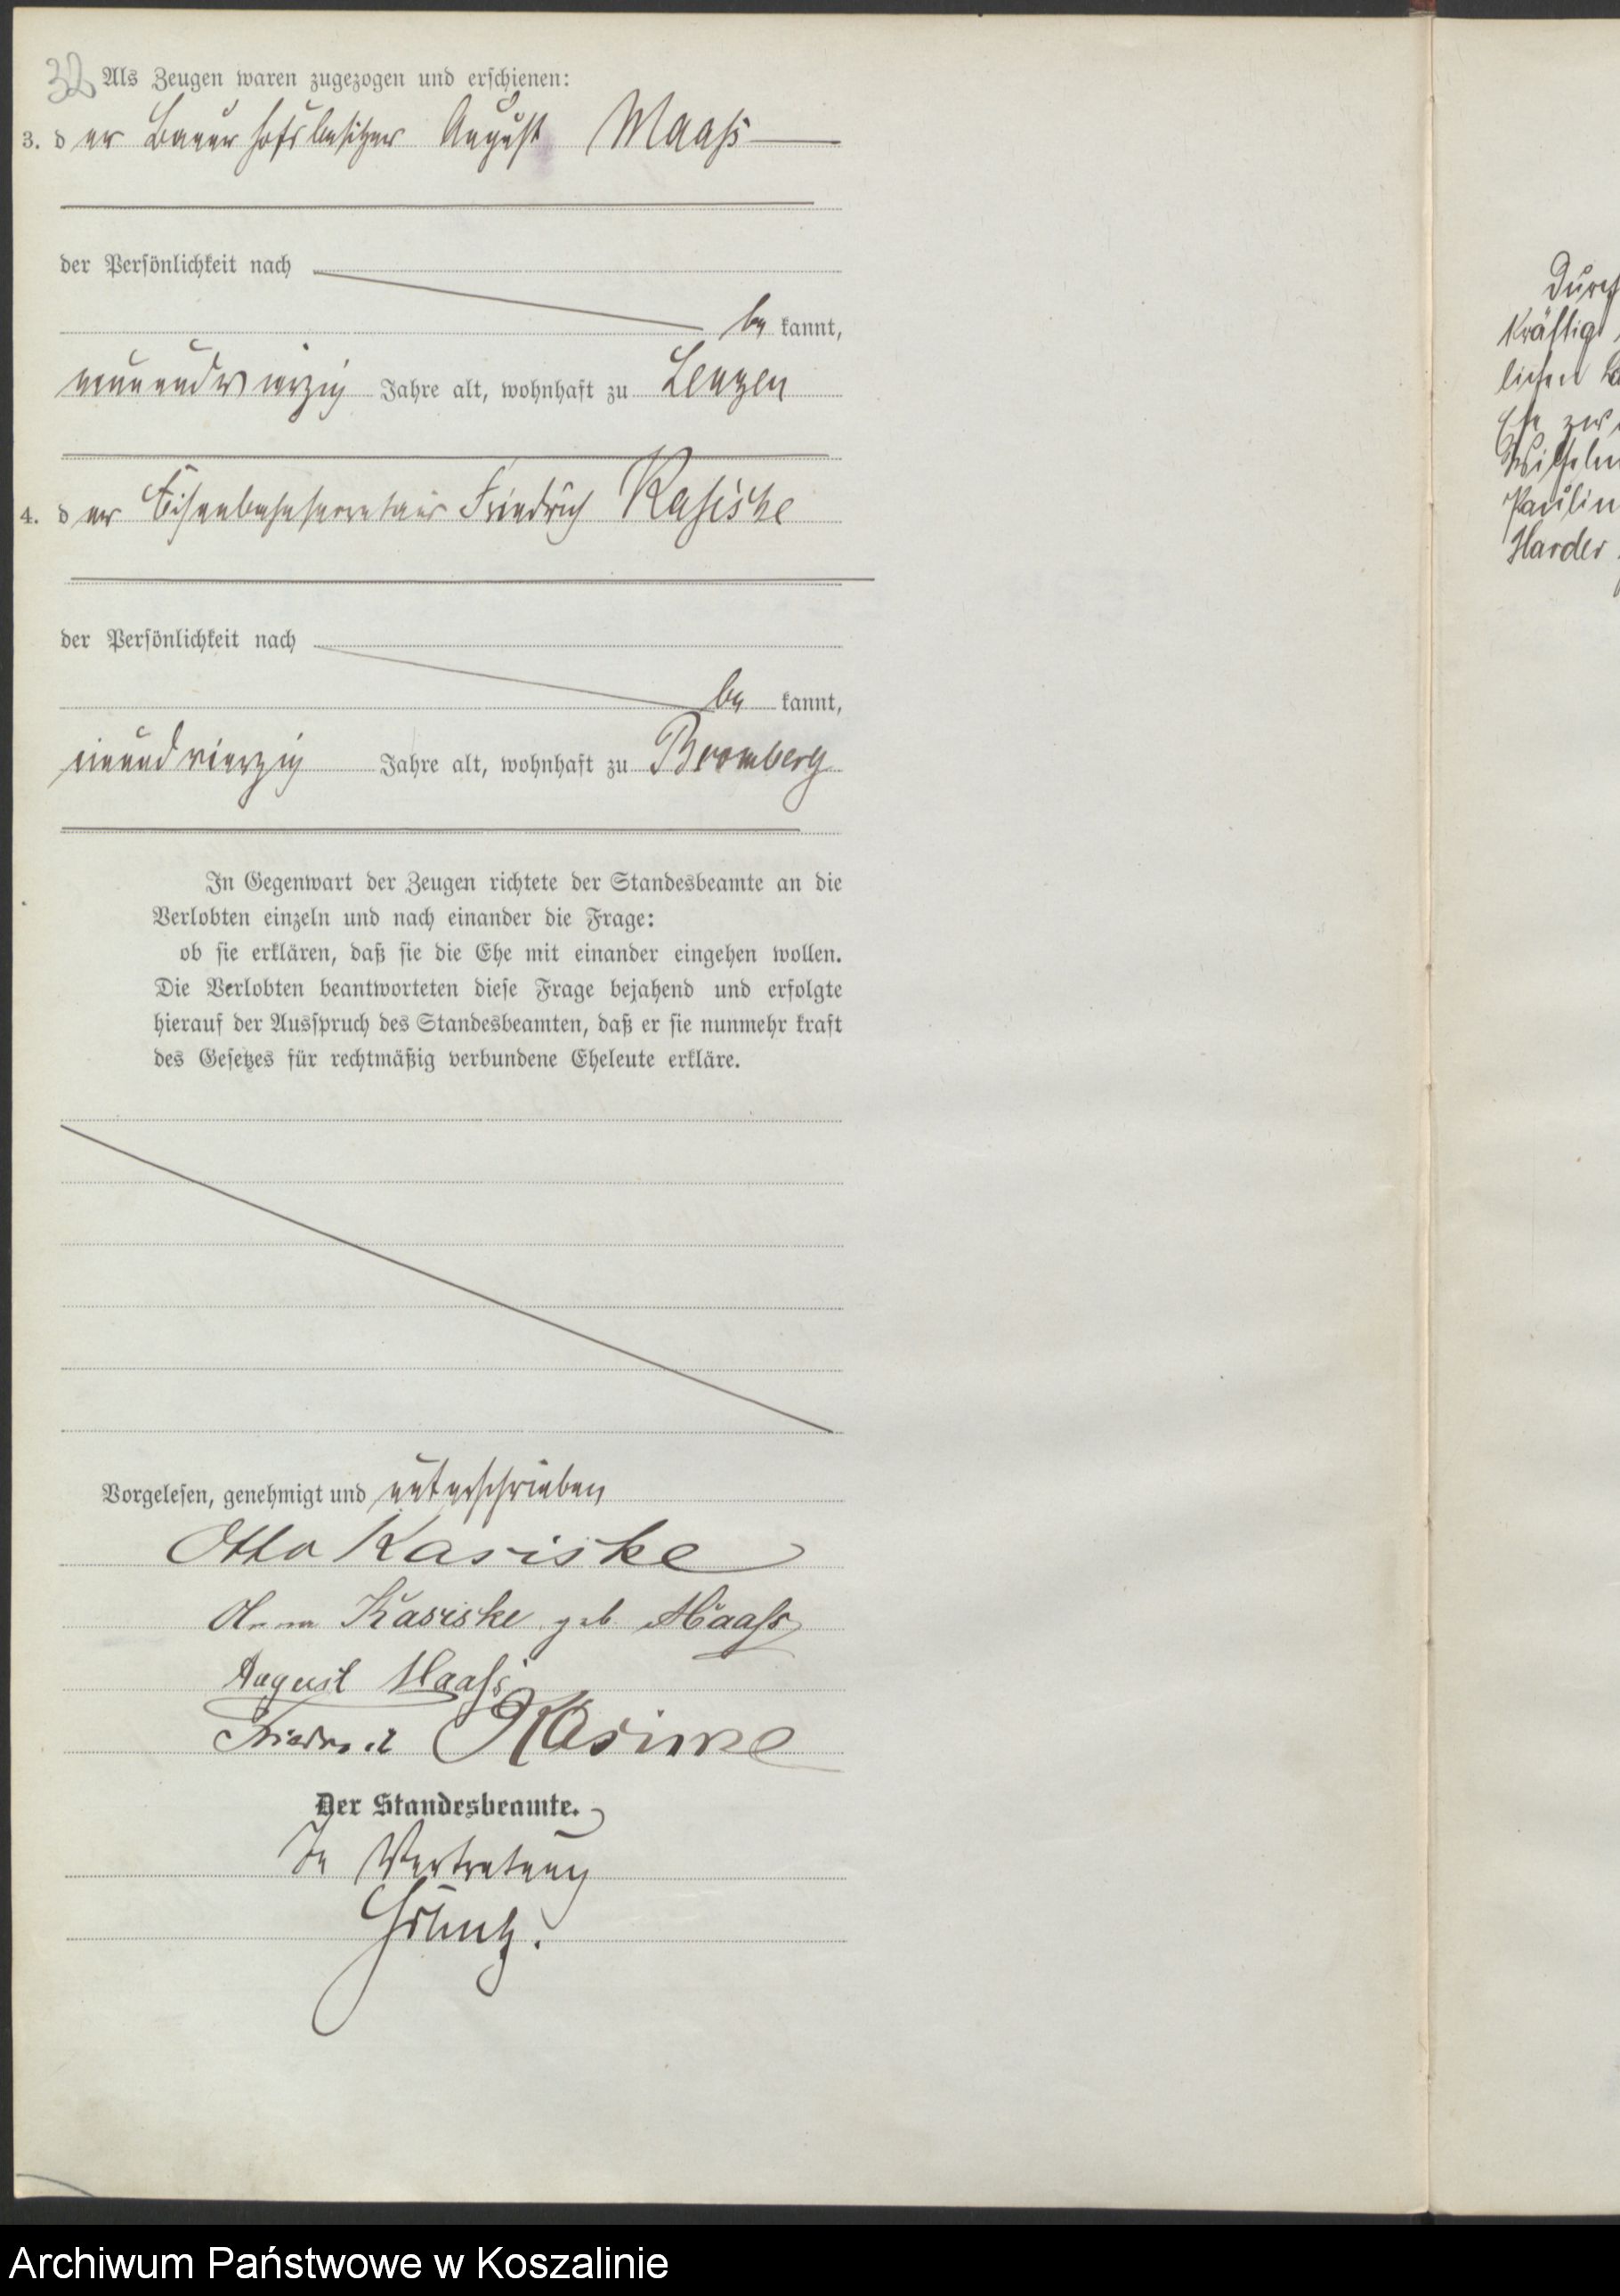 32 Als Zeugen waren zugezogen und erschienen:
3. der Bauerhofsbesitzer August Maaß
der Persönlichkeit nach
bekannt,
neunundvierzig Jahre alt, wohnhaft zu Lenzen
4. der Eisenbahnsecretair Friedrich Kasiske
der Persönlichkeit nach
bekannt,
Jahre alt, wohnhaft zu Bromberg
In Gegenwart der Zeugen richtete der Standesbeamte an die
Verlobten einzeln und nach einander die Frage:
ob sie erklären, daß sie die Ehe mit einander eingehen wollen.
Die Verlobten beantworteten diese Frage bejahend und erfolgte
hierauf der Ausspruch des Standesbeamten, daß er sie nunmehr kraft
des Gesetzes für rechtmäßig verbundene Eheleute erkläre.
Vorgelesen, genehmigt und unterschrieben
Otto Kasiske
Anna Kasiske geb Maaß
August Maaß
Friedrich Kasiske
Der Standesbeamte.
In Vertretung
Durch
kräftig
lichen La
Ehe zwi
Wilhelm
Paulin
Harder
Archiwum Państwowe w Koszalinie